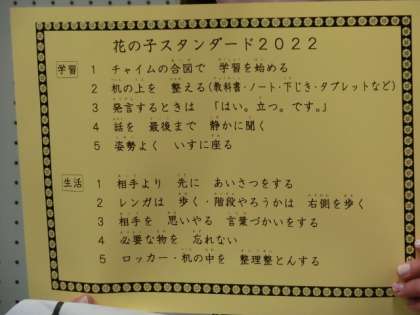 花の子スタンダード2022
学習
1 チャイムの合図で 学習を始める
2 机の上を 整える(教科書・ノート・下じき・タブレットなど)
3 発言するときは 「はい。立つ。です。」
4 話を 最後まで 静かに聞く
5 姿勢よく いすに座る
生活
1 相手より 先に あいさつをする
2 レンガは 歩く・階段やろうかは 右側を歩く
3 相手を 思いやる 言葉づかいをする
4 必要な物を 忘れない
5 ロッカー・机の中を 整理整とんする